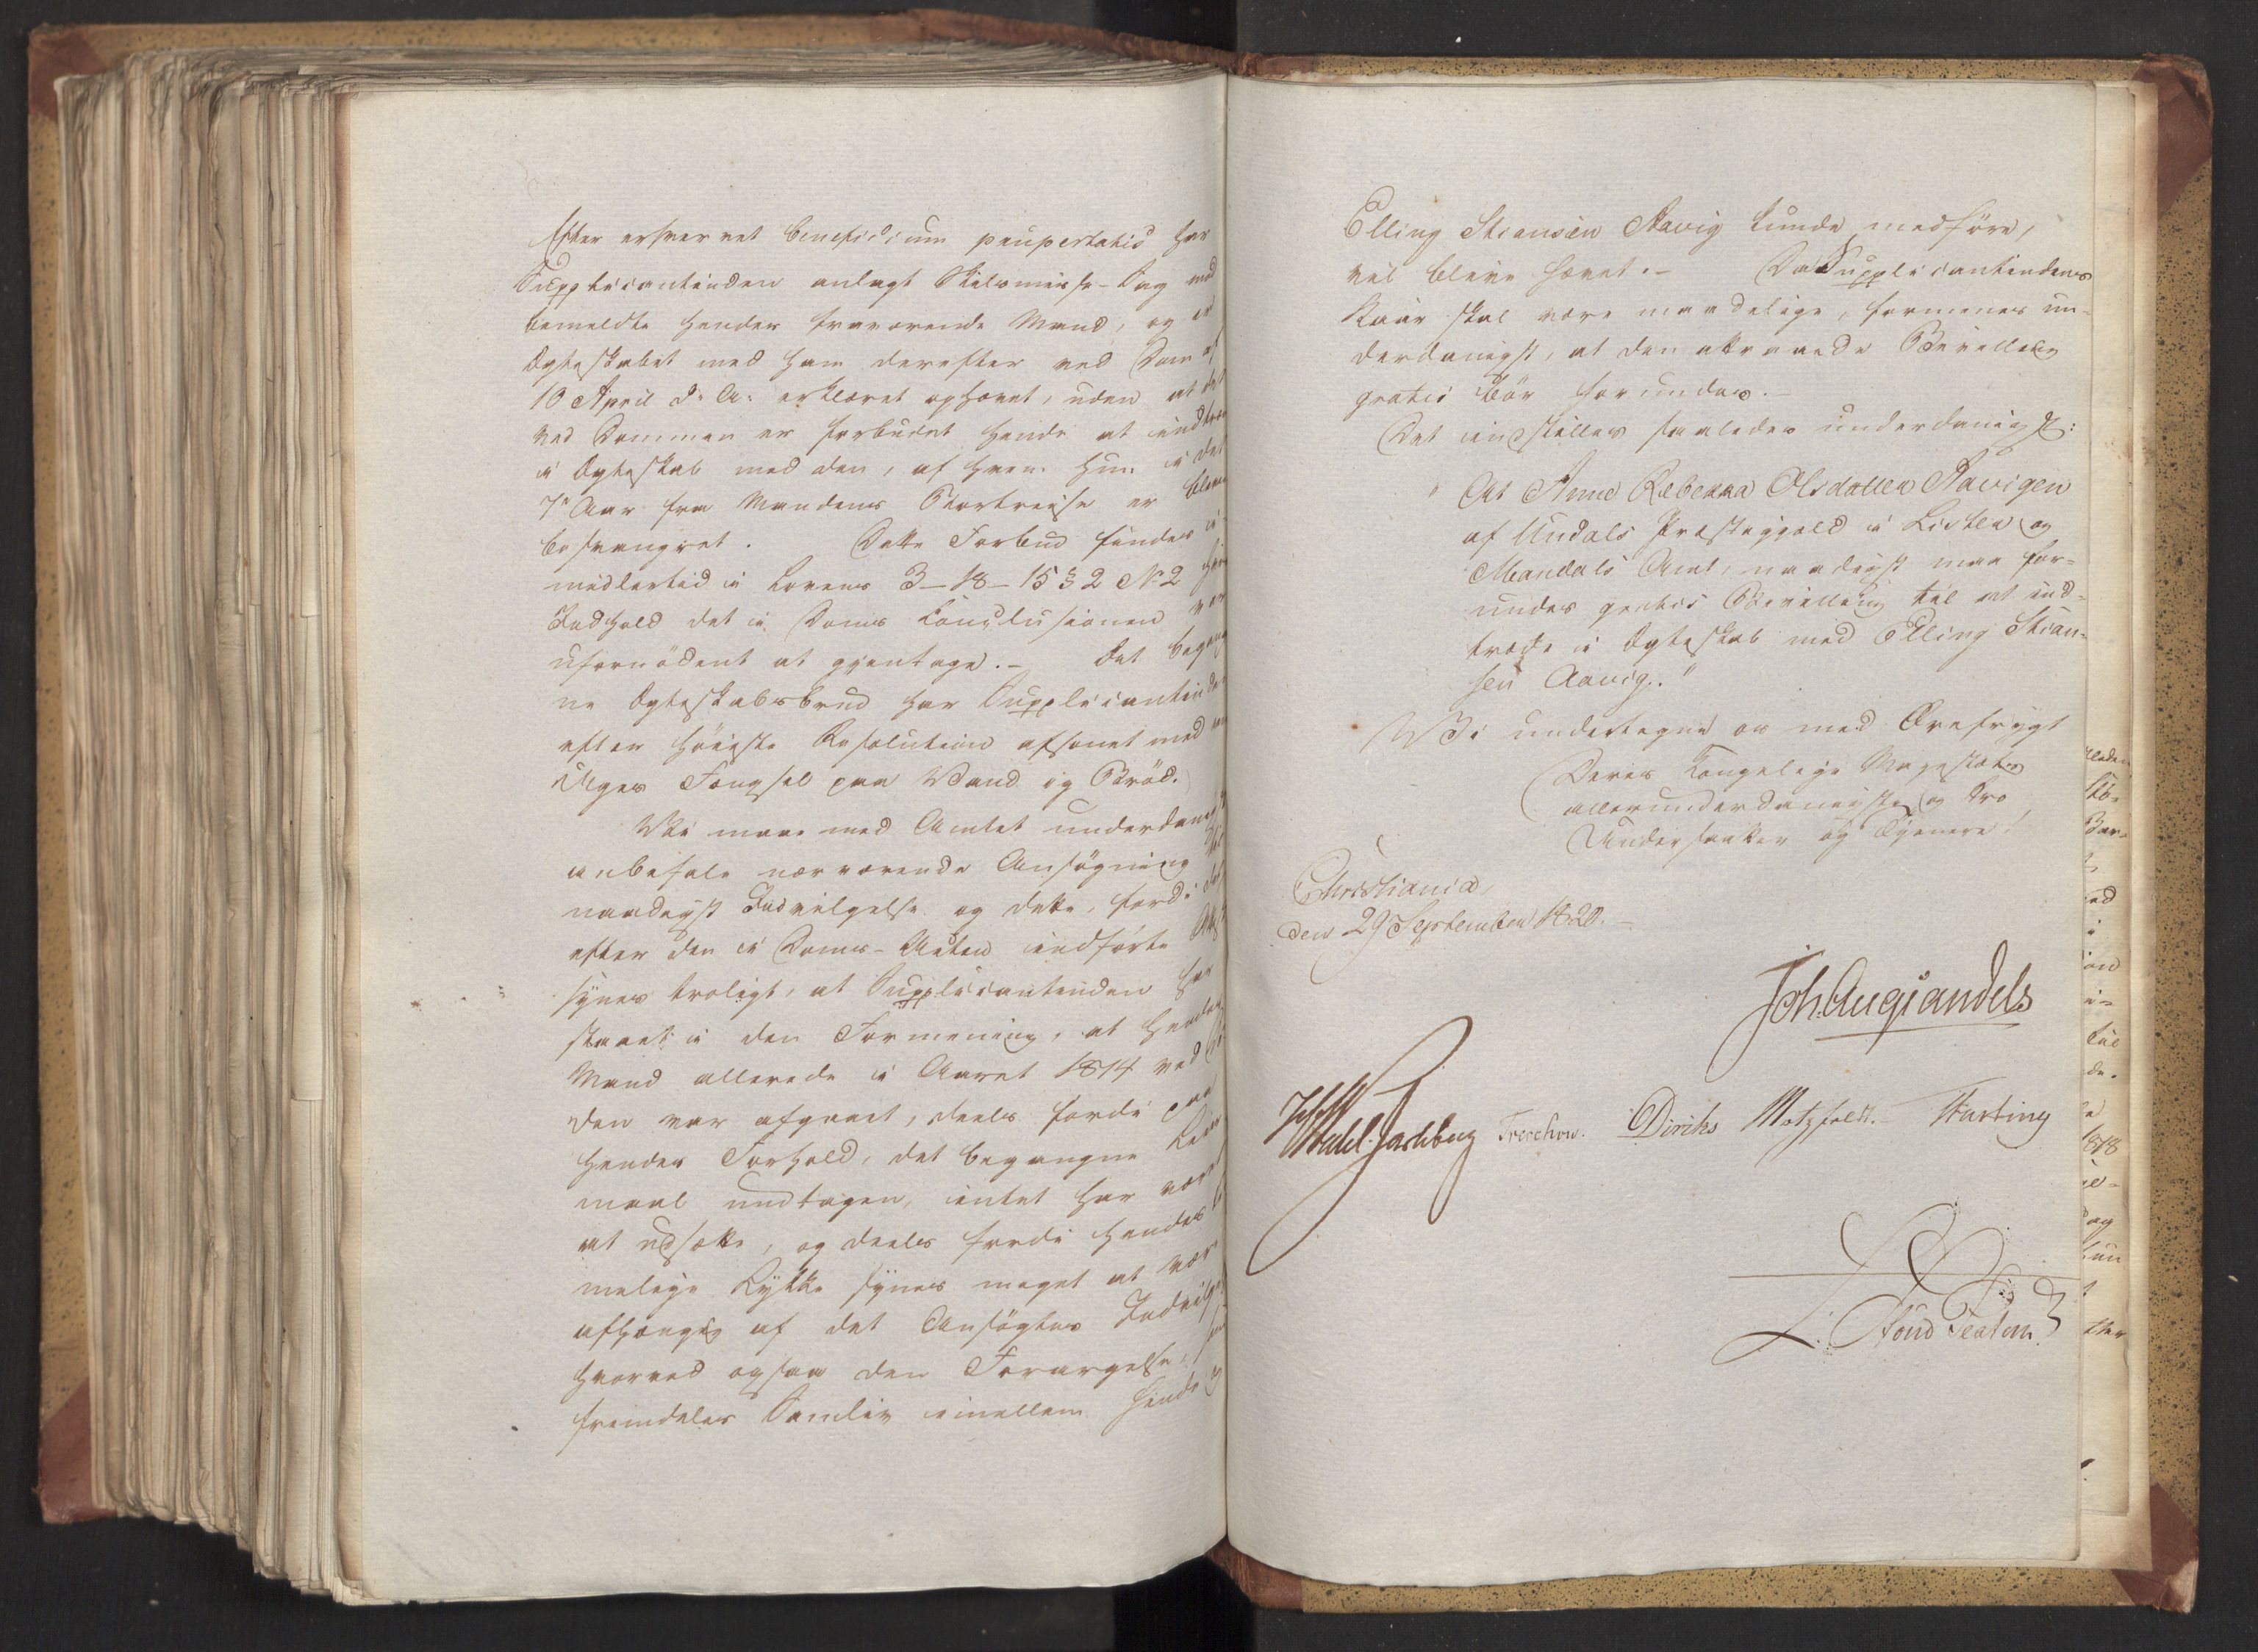 Efter erhvervet beneficium paupertatis har
Supplicantinden anlagt Skilsmisse-Sag mod
bemeldte hendes fraværende Mand, og er
Ægteskabet med ham derefter ved Dom af
10 April d. A. erklæret ophævet, uden at det
ved Dommen er forbudet hende at indtræde
i Ægteskab med den, af hvem hun i det
7de Aar fra Mandens Bortreise er bleven
besvangret. Dette Forbud findes i
midlertid i Lovens 3-18-15 § 2 No 2
Indhold det i Doms Conclusionen var
ufornödent at gjentage.- Det begang
ne Ægteskabsbrud har Supplicantinden
efter höieste Resolution afsonet med
Uges Fængsel paa Vand og Bröd.
Vi maae med Amtet underdanigst
anbefale nærværende Ansögning til
naadigst Indvilgelse og dette, fordi det
efter den i Doms-Acten indförte
synes troligt, at Supplicantinden har
staaet i den Formening, at hendes
Mand allerede i Aaret 1814 ved
den var afgaaet, deels fordi paa
hendes Forhold, det begangne Leier
maal undtagen, intet har været
at udsætte, og deels fordi hendes
melige Lykke synes meget at være
afhængig af det Ansögtes Indvilgelse
hvorved ogsaa den Forargelse,
fremdeles Samliv imellem hende og
Elling Stiansen Aavig kunde medföre,
vil blive hævet.- Da Supplicantindens
Kaar skal være maadelige, formenes un-
derdanigst, at den attraaede Bevilling
gratis bör forundes.-
Det indstilles saaledes underdanigst:
"At Anne Rebekka Olsdatter Aavigen
af Undals Præstegjeld i Lister og
Mandals Amt, naadigst maa for-
undes gratis Bevilling til at ind-
træde i Ægteskab med Elling Stian-
sen Aavig."
Vi undertegne os med Ærefrygt
Deres Kongelige Majestæts
allerunderdanigste og tro
Undersaatter og Tjenere!
Christiania,
den 29 September 1820.-
Joh. Aug. Sandels
Treschow. Diriks Motzfeldt. Fasting